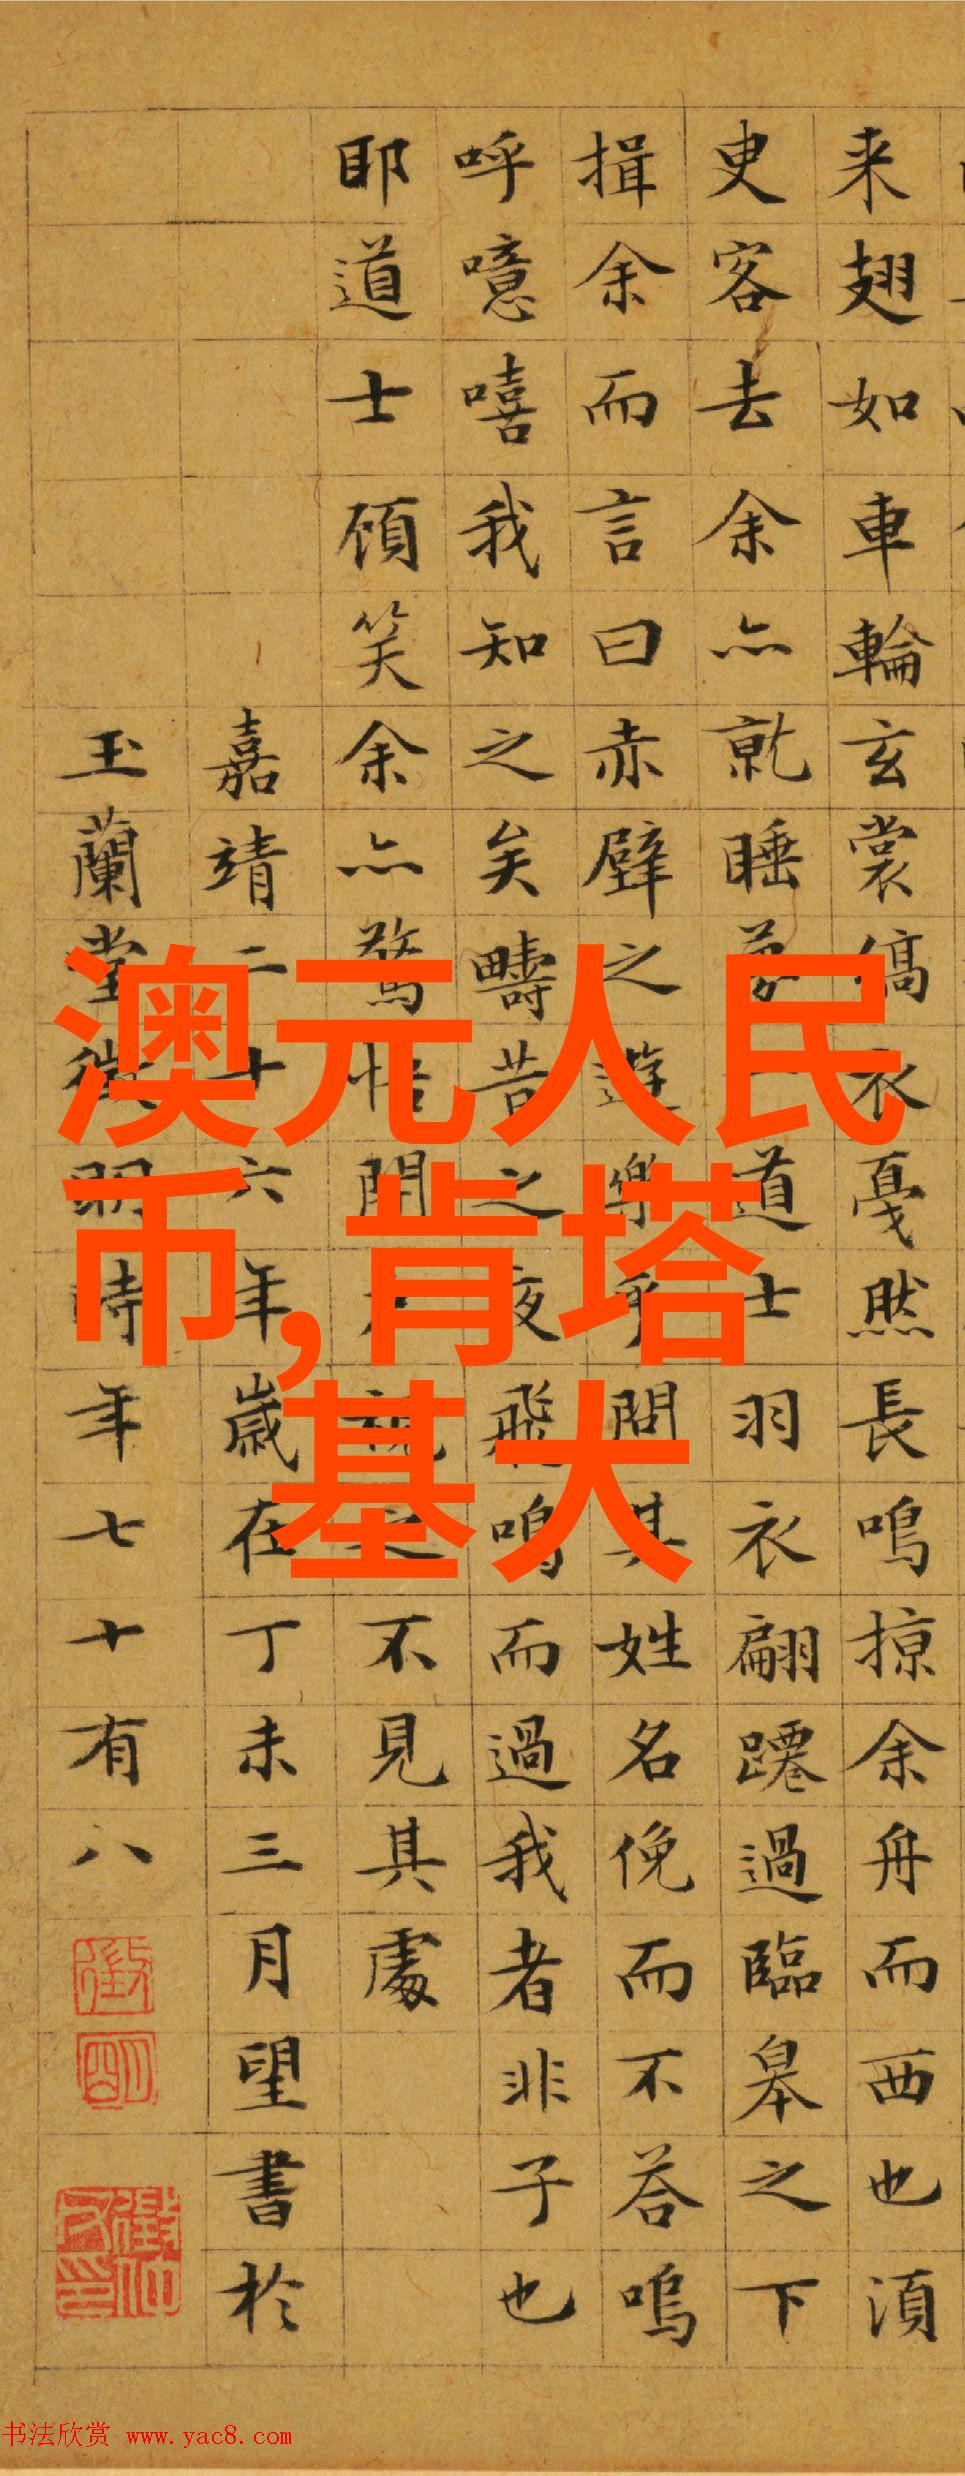 来翅如車輪玄裳縞衣戛然長鳴掠余舟而西也湏
臾客去余亦就睡夢一道士羽衣翩躚過臨皋之下
揖余而言曰赤壁之遊樂乎問其姓名俛而不荅嗚
呼噫嘻我知之矣疇昔之夜飛鳴而過我者非子也
耶道士顧笑余亦驚悟開户視之不見其處
嘉靖二十六年歲在丁未三月望書於
玉蘭堂徵明時年七十有八
徵
明
澳元人民
币,肯塔
基大
书法欣赏 www.yac8.com